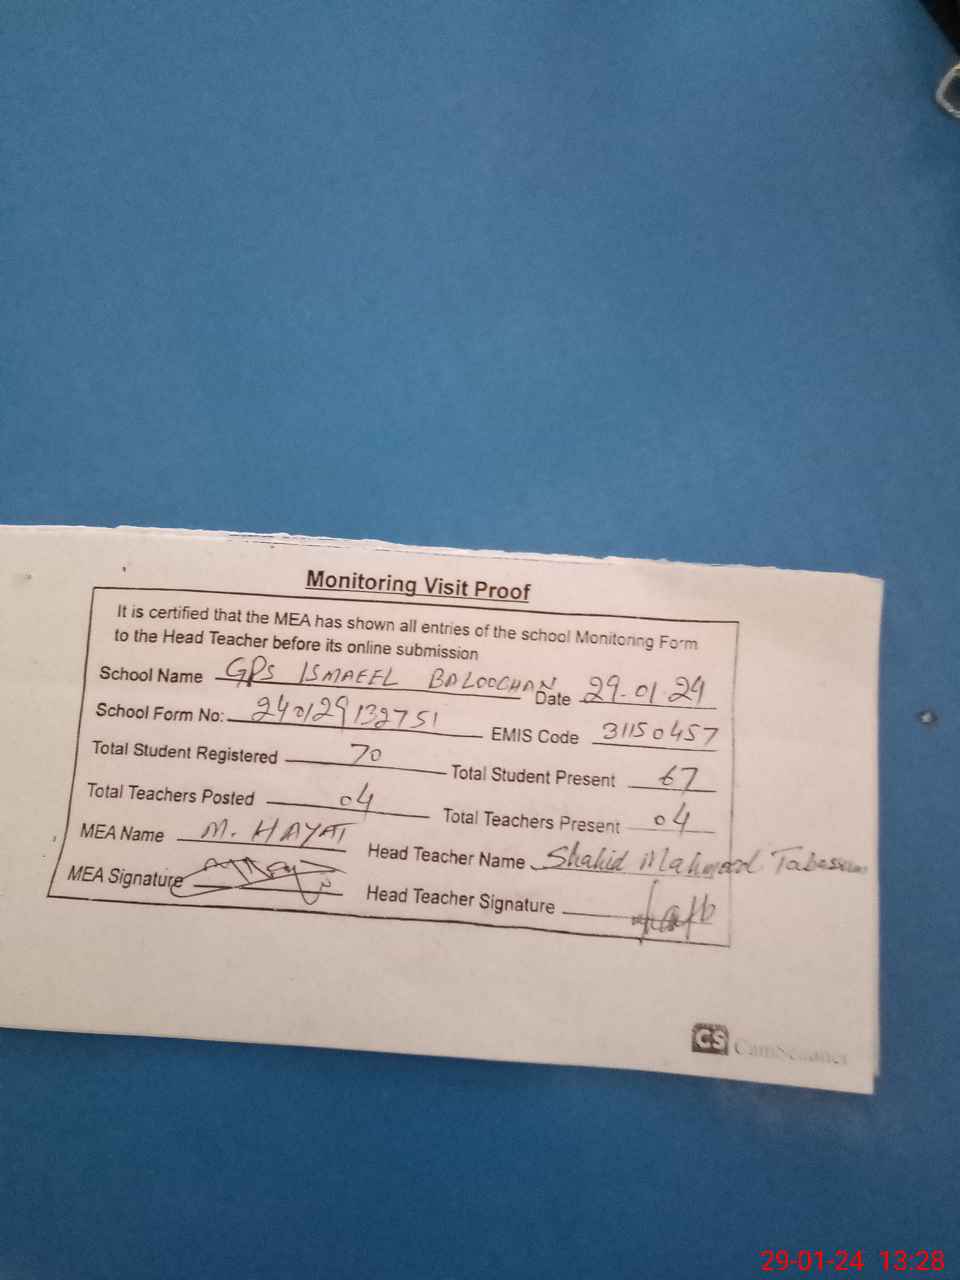 Monitoring Visit Proof
It is certified that the MEA has shown all entries of the school Monitoring Form
to the Head Teacher before its online submission
School Name GPS ISMAEEL BALOOCHAN Date 29-01-24
School Form No: 240129132751 EMIS Code 31150457
Total Student Registered 70 Total Student Present 67
Total Teachers Posted 04 Total Teachers Present 04
MEA Name M. HAYAT Head Teacher Name Shahid Mahmood Tabassum
MEA Signature Head Teacher Signature
CS CamScanner
29-01-24 13:28